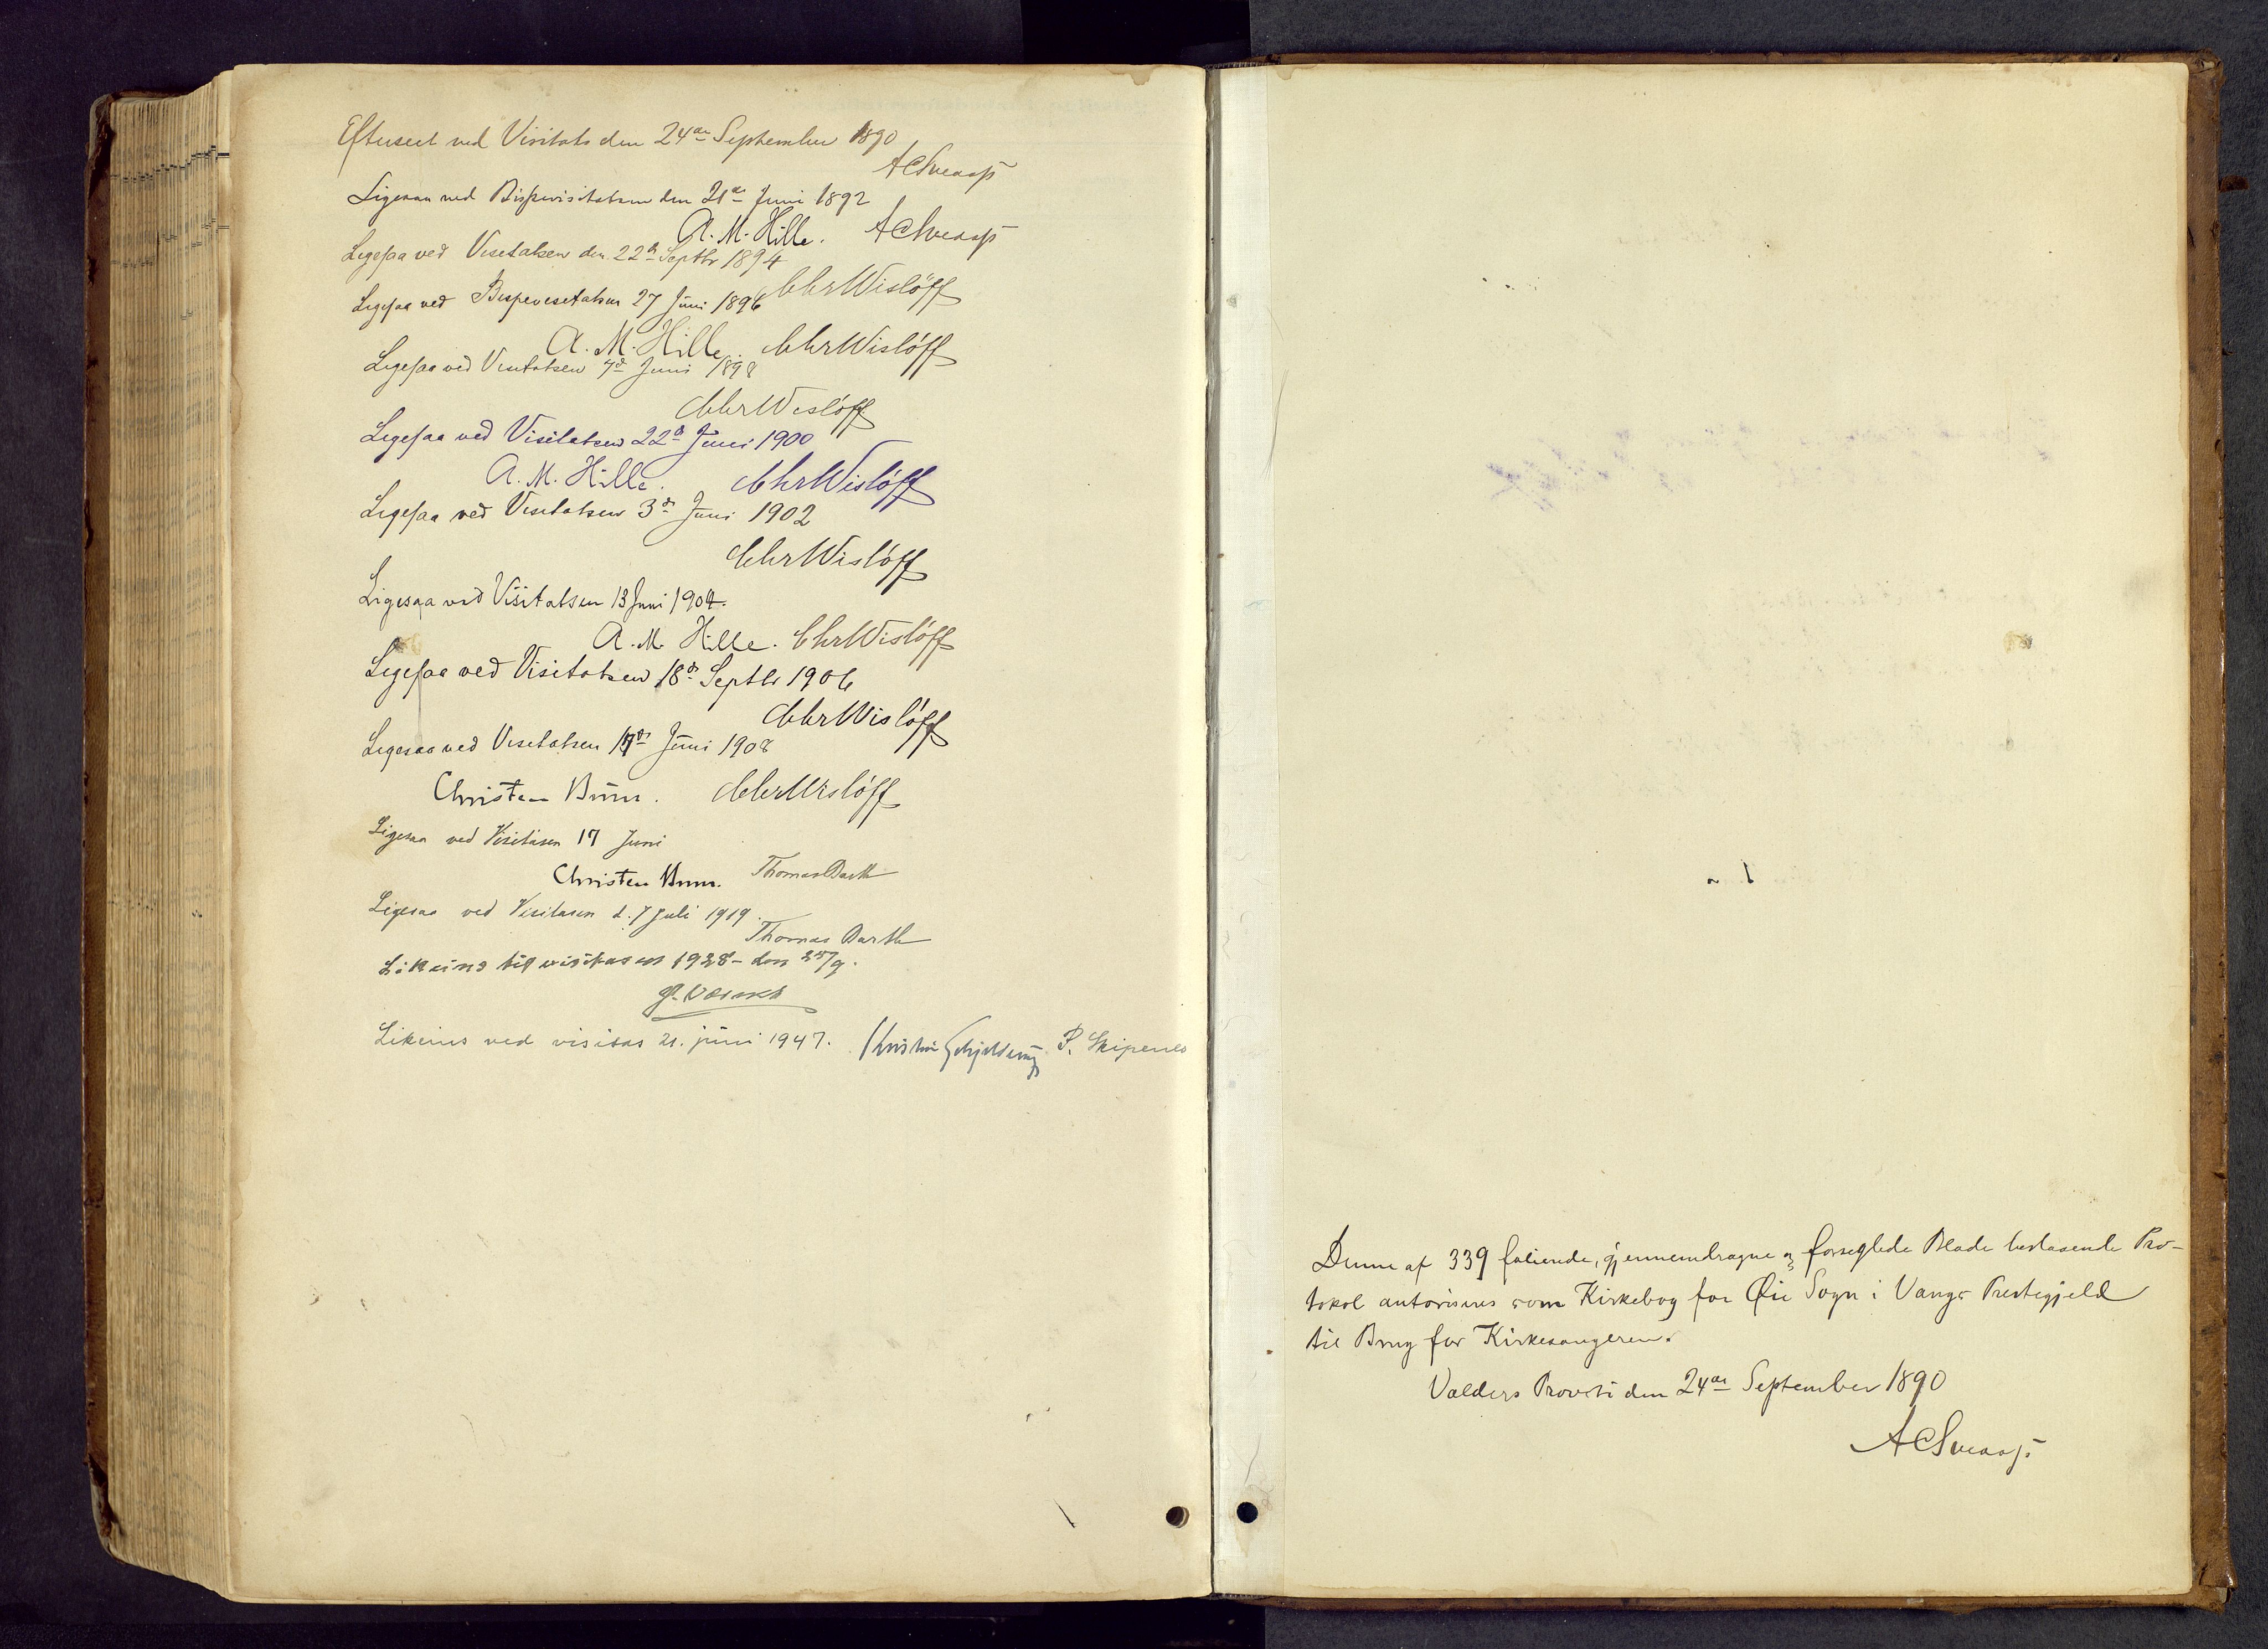 Efterseet ved Visitats den 24de September 1890
ACSveaaß
Ligesaa ved Bispevisitatsen den 21de Juni 1892
A. M. Hille. ACSveaaß
Ligesaa ved Visitatsen den 22de Septbr 1894
Chr Wislöff
Ligesaa ved Bispevisitatsen 27 Juni 1896
A. M. Hille. Chr Wislöff
Ligesaa ved Visitatsen 7de Juni 1898
Chr Wislöff
Ligesaa ved Visitatsen 22de Juni 1900
A. M. Hille. Chr Wislöff
Ligesaa ved Visitatsen 3de Juni 1902
Chr Wislöff
Ligesaa ved Visitatsen 13 Juni 1904.
A. M. Hille. Chr Wislöff
Ligesaa ved Visitatsen 18de Septbr 1906
Chr Wislöff
Ligesaa ved Visitatsen 17de Juni 1908
Christen Brun. Chr Wislöff
Ligesaa ved Visitasen 17 Juni
Christen Brun. Thomas Barth
Ligesaa ved Visitasen d. 7 Juli 1919.
Thomas Barth
Likeins til visitasen 1928 - den 25/9.
Likeins ved visitas 21. juni 1947. Kristian Schjelderup P. Skipenes
Denne af 339 folierede, gjennemdragne og forseglede Blade bestaaende Pro-
tokol autoriseres som Kirkebog for Øie Sogn i Vangs Prestegjeld
til Brug for Kirkesangeren.
Valders Provsti den 24de September 1890
ACSveaaß